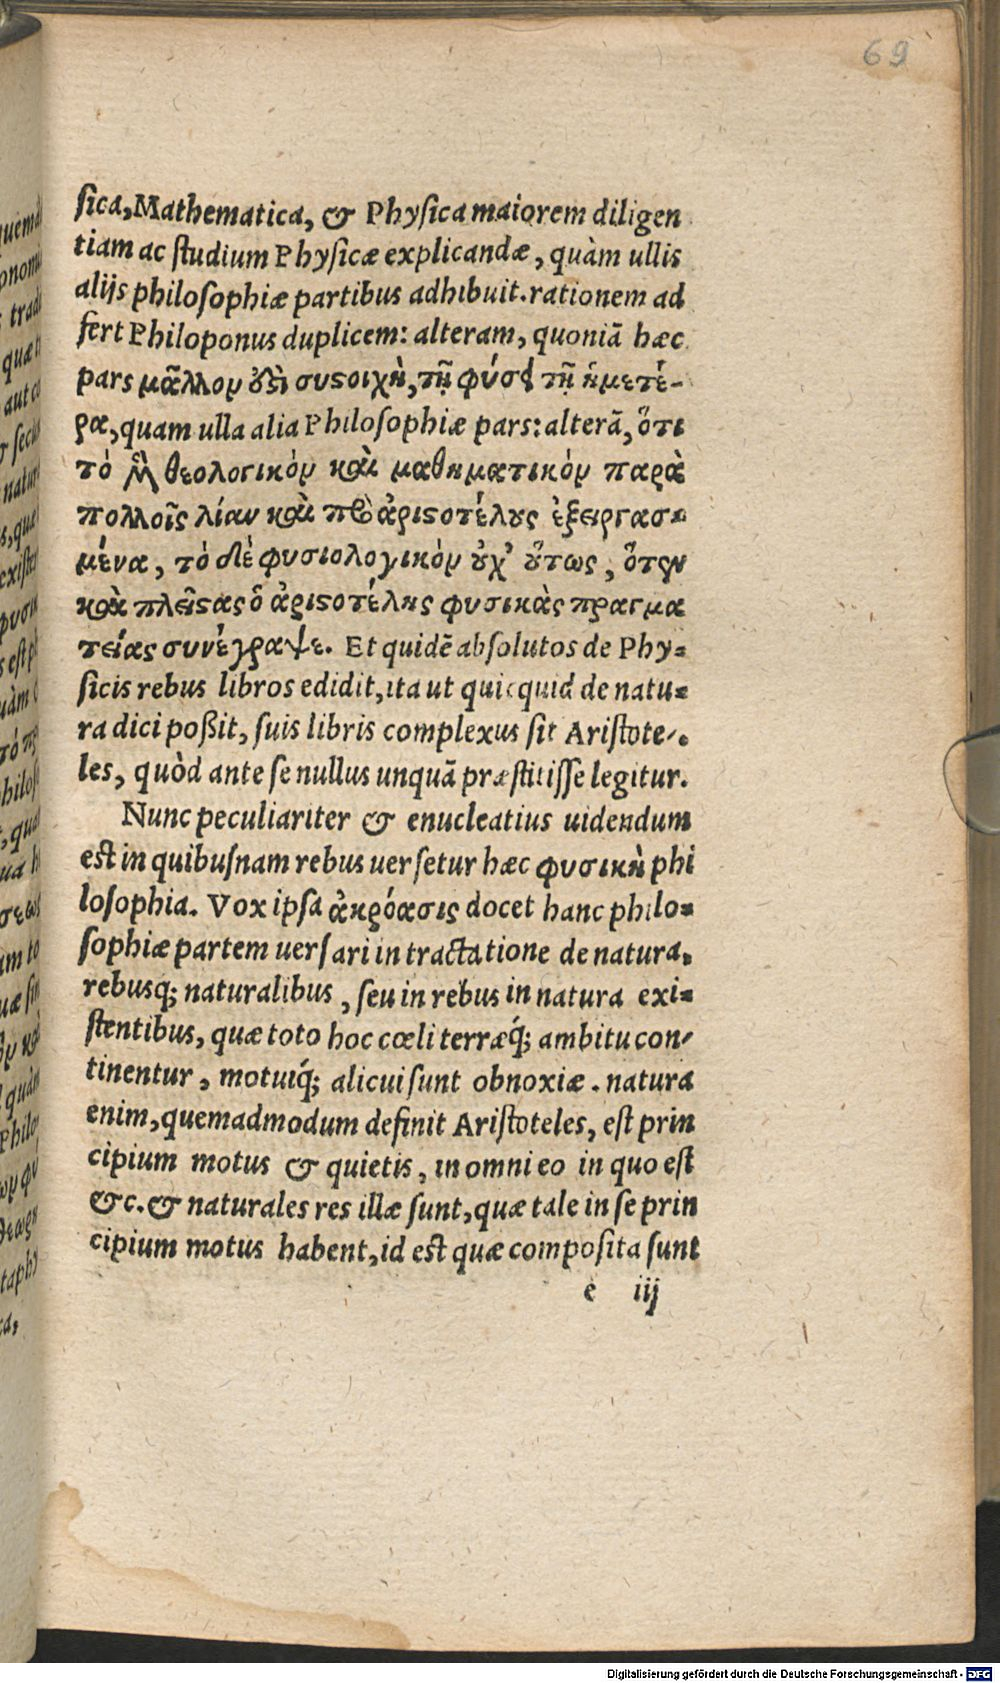 69
sica, Mathematica, & Physica maiorem diligen
tiam ac studium Physicæ explicandæ, quàm ullis
alijs philosophiæ partibus adhibuit. rationem ad
fert Philoponus duplicem: alteram, quoniã hæc
pars μᾶλλον ὅτι συϛοιχὴ, τῇ φύσει τῇ ἡμετέ-
ρα, quam ulla alia Philosophiæ pars: alterã, ὅτι
τὸ μὲν θεολογικὸν καὶ μαθηματικὸν παρὰ
πολλοῖς λίαν καὶ πρὸ ἀριϛοτέλους ἐξειργασ-
μένα, τὸ δὲ φυσιολογικὸν οὐχ' οὕτως, ὅθεν
καὶ πλείϛας ὁ ἀριϛοτέλης φυσικὰς πραγμα
τείας συνέγραψε. Et quidẽ absolutos de Phy-
sicis rebus libros edidit, ita ut quicquid de natu-
ra dici poßit, suis libris complexus sit Aristote-
les, quòd ante se nullus unquã præstitisse legitur.
Nunc peculiariter & enucleatius uidendum
est in quibusnam rebus uersetur hæc φυσικὴ phi
losophia. Vox ipsa ἀκρόασις docet hanc philo-
sophiæ partem uersari in tractatione de natura,
rebusq; naturalibus, seu in rebus in natura exi-
stentibus, quæ toto hoc cœli terræq́; ambitu con-
tinentur, motuiq́; alicui sunt obnoxiæ. natura
enim, quemadmodum definit Aristoteles, est prin
cipium motus & quietis, in omni eo in quo est
&c. & naturales res illæ sunt, quæ tale in se prin
cipium motus habent, id est quæ composita sunt
e iij
Digitalisierung gefördert durch die Deutsche Forschungsgemeinschaft - DFG